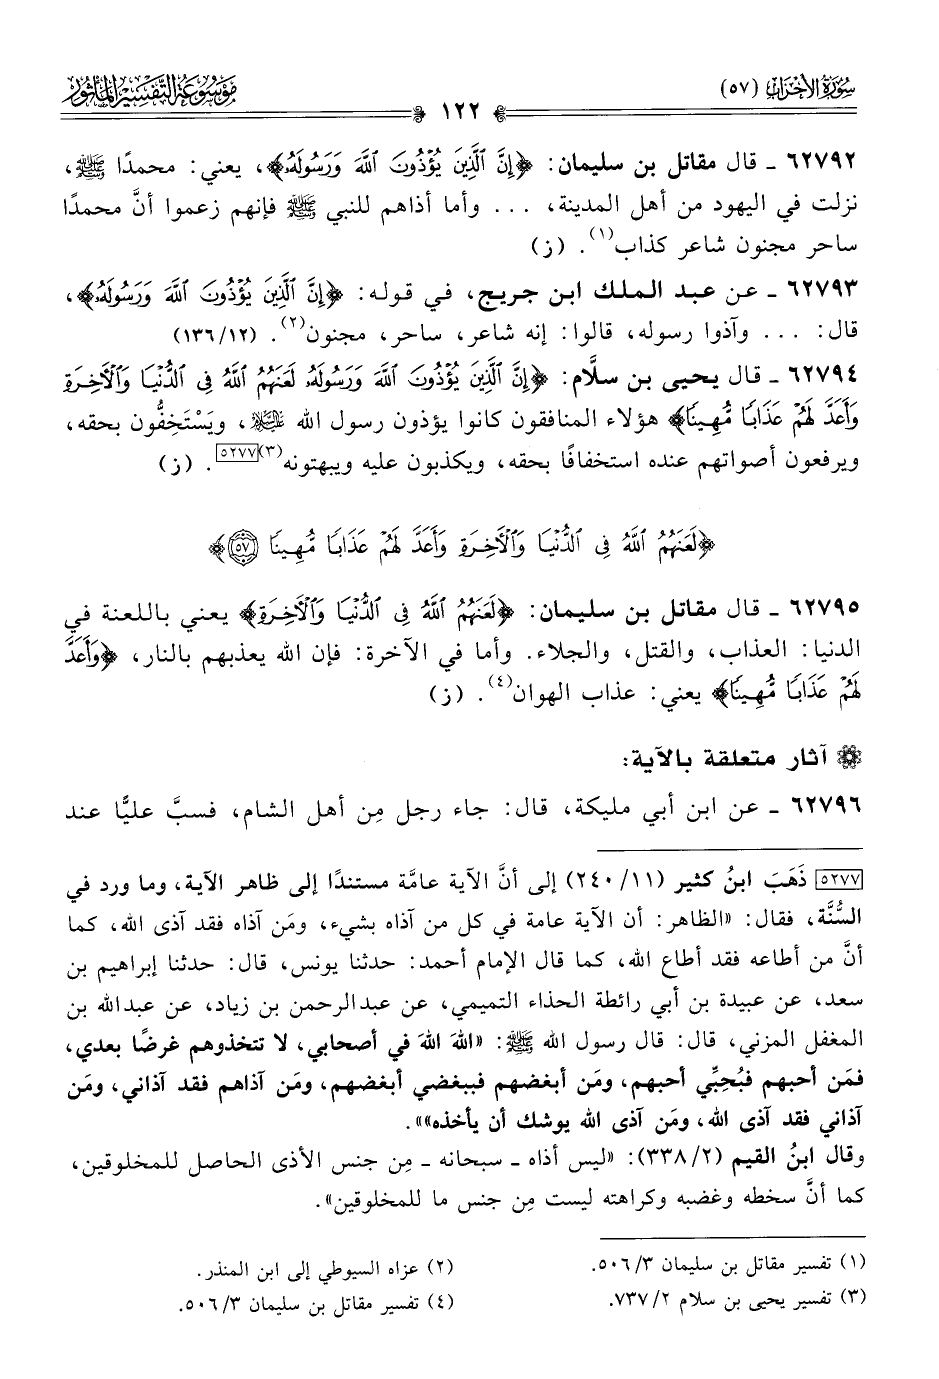 سورة الأحزاب (٥٧)
١٢٢
موسوعة التفسير المأثور
٦٢٧٩٢ ـ قال مقاتل بن سليمان: ﴿إِنَّ ٱلَّذِينَ يُؤْذُونَ ٱللَّهَ وَرَسُولَهُۥ﴾، يعني: محمدًا ﷺ،
نزلت في اليهود من أهل المدينة، ... وأما أذاهم للنبي ﷺ فإنهم زعموا أنَّ محمدًا
ساحر مجنون شاعر كذاب(١). (ز)
٦٢٧٩٣ ـ عن عبد الملك ابن جريج، في قوله: ﴿إِنَّ ٱلَّذِينَ يُؤْذُونَ ٱللَّهَ وَرَسُولَهُۥ﴾،
قال: ... وآذوا رسوله، قالوا: إنه شاعر، ساحر، مجنون(٢). (١٣٦/١٢)
٦٢٧٩٤ ـ قال يحيى بن سلَّام: ﴿إِنَّ ٱلَّذِينَ يُؤْذُونَ ٱللَّهَ وَرَسُولَهُۥ لَعَنَهُمُ ٱللَّهُ فِى ٱلدُّنْيَا وَٱلْأَخِرَةِ
وَأَعَدَّ لَهُمْ عَذَابًا مُّهِينًا﴾ هؤلاء المنافقون كانوا يؤذون رسول الله ﷺ، ويَسْتَخِفُّون بحقه،
ويرفعون أصواتهم عنده استخفافًا بحقه، ويكذبون عليه ويبهتونه(٣)[٥٢٧٧]. (ز)
﴿لَعَنَهُمُ ٱللَّهُ فِى ٱلدُّنْيَا وَٱلْأَخِرَةِ وَأَعَدَّ لَهُمْ عَذَابًا مُّهِينًا ۝٥٧﴾
٦٢٧٩٥ ـ قال مقاتل بن سليمان: ﴿لَعَنَهُمُ ٱللَّهُ فِى ٱلدُّنْيَا وَٱلْأَخِرَةِ﴾ يعني باللعنة في
الدنيا: العذاب، والقتل، والجلاء. وأما في الآخرة: فإن الله يعذبهم بالنار، ﴿وَأَعَدَّ
لَهُمْ عَذَابًا مُّهِينًا﴾ يعني: عذاب الهوان(٤). (ز)
❁ آثار متعلقة بالآية:
٦٢٧٩٦ ـ عن ابن أبي مليكة، قال: جاء رجل مِن أهل الشام، فسبَّ عليًّا عند
[٥٢٧٧] ذَهَبَ ابنُ كثير (٢٤٠/١١) إلى أنَّ الآية عامَّة مستندًا إلى ظاهر الآية، وما ورد في
السُّنَّة، فقال: «الظاهر: أن الآية عامة في كل من آذاه بشيء، ومَن آذاه فقد آذى الله، كما
أنَّ من أطاعه فقد أطاع الله، كما قال الإمام أحمد: حدثنا يونس، قال: حدثنا إبراهيم بن
سعد، عن عبيدة بن أبي رائطة الحذاء التميمي، عن عبدالرحمن بن زياد، عن عبدالله بن
المغفل المزني، قال: قال رسول الله ﷺ: «اللهَ اللهَ في أصحابي، لا تتخذوهم غرضًا بعدي،
فمَن أحبهم فبُحِبِّي أحبهم، ومَن أبغضهم فببغضي أبغضهم، ومَن آذاهم فقد آذاني، ومَن
آذاني فقد آذى الله، ومَن آذى الله يوشك أن يأخذه»».
وقال ابنُ القيم (٣٣٨/٢): «ليس أذاه ـ سبحانه ـ مِن جنس الأذى الحاصل للمخلوقين،
كما أنَّ سخطه وغضبه وكراهته ليست مِن جنس ما للمخلوقين».
(١) تفسير مقاتل بن سليمان ٥٠٦/٣.
(٢) عزاه السيوطي إلى ابن المنذر.
(٣) تفسير يحيى بن سلام ٧٣٧/٢.
(٤) تفسير مقاتل بن سليمان ٥٠٦/٣.